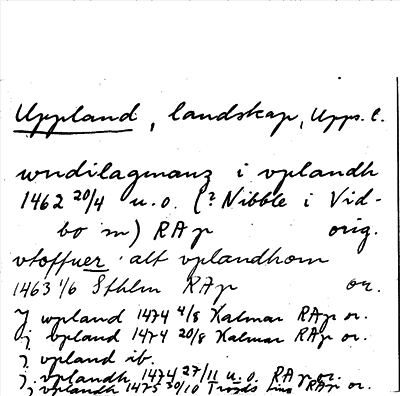 Uppland, landskap, Upps. l.
wndilagmanz i vplandh
1462 20/4 u.o. (? Nibble i Vid-
bo sn) RAp orig.
vtoffuer alt vplandhom
1463 1/6 Sthlm RAp or.
J wpland 1474 4/8 Kalmar RAp or.
j vpland 1474 20/8 Kalmar RAp or.
j vpland ib.
j vplandh 1474 27/11 u.o. RAp or.
j vplandh 1475 30/10 RAp or.